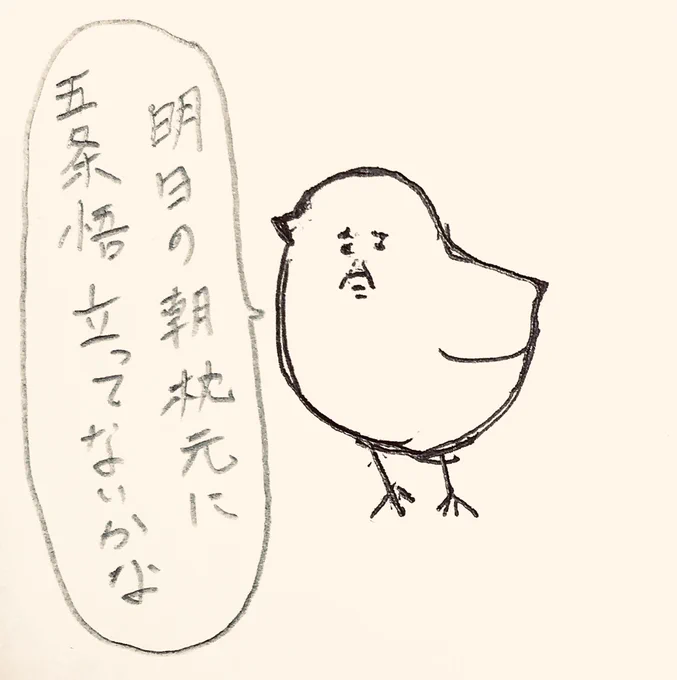 明日の朝枕元に
五条悟立ってないかな